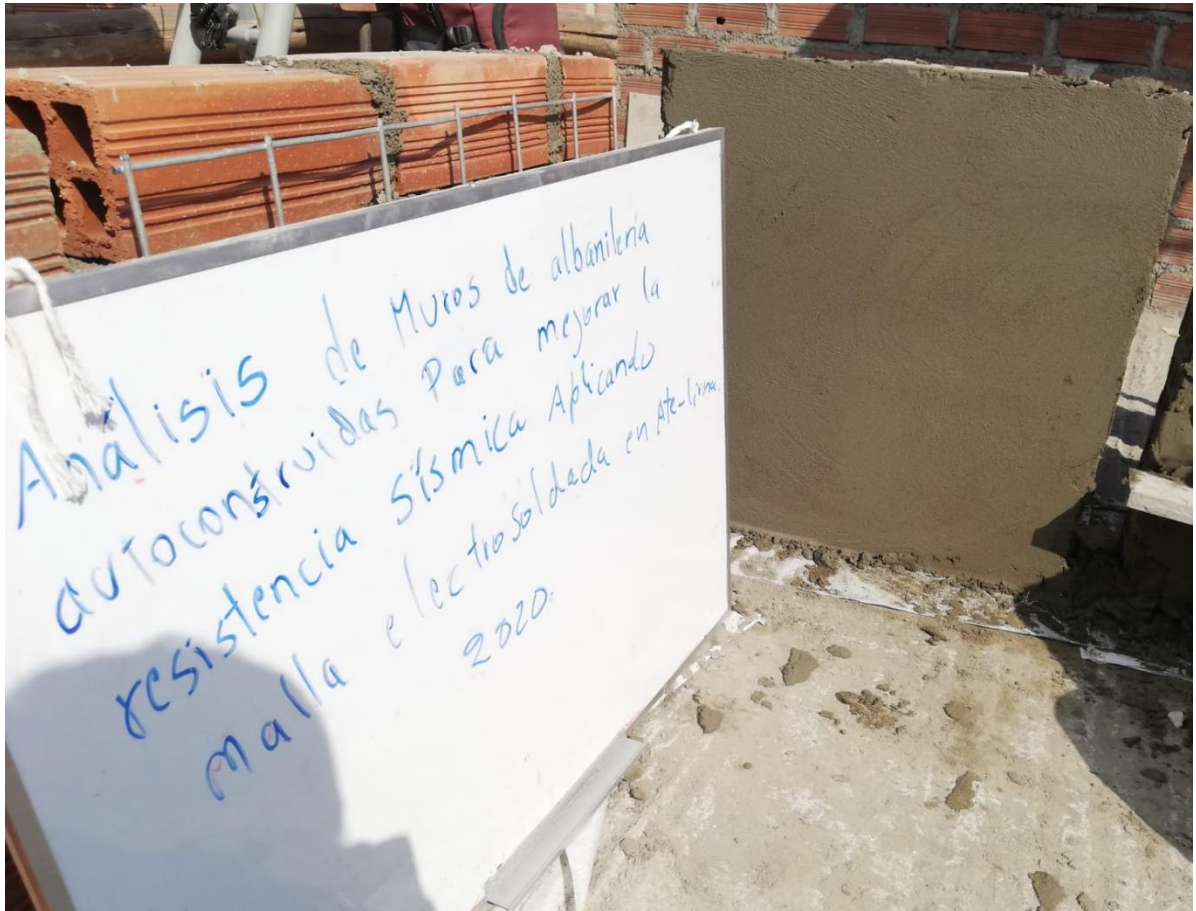 Análisis de Muros de albanileria
autoconstruidas Para mejorar la
resistencia sísmica Aplicando
malla electrosoldada en Ate-Lima.
2020.